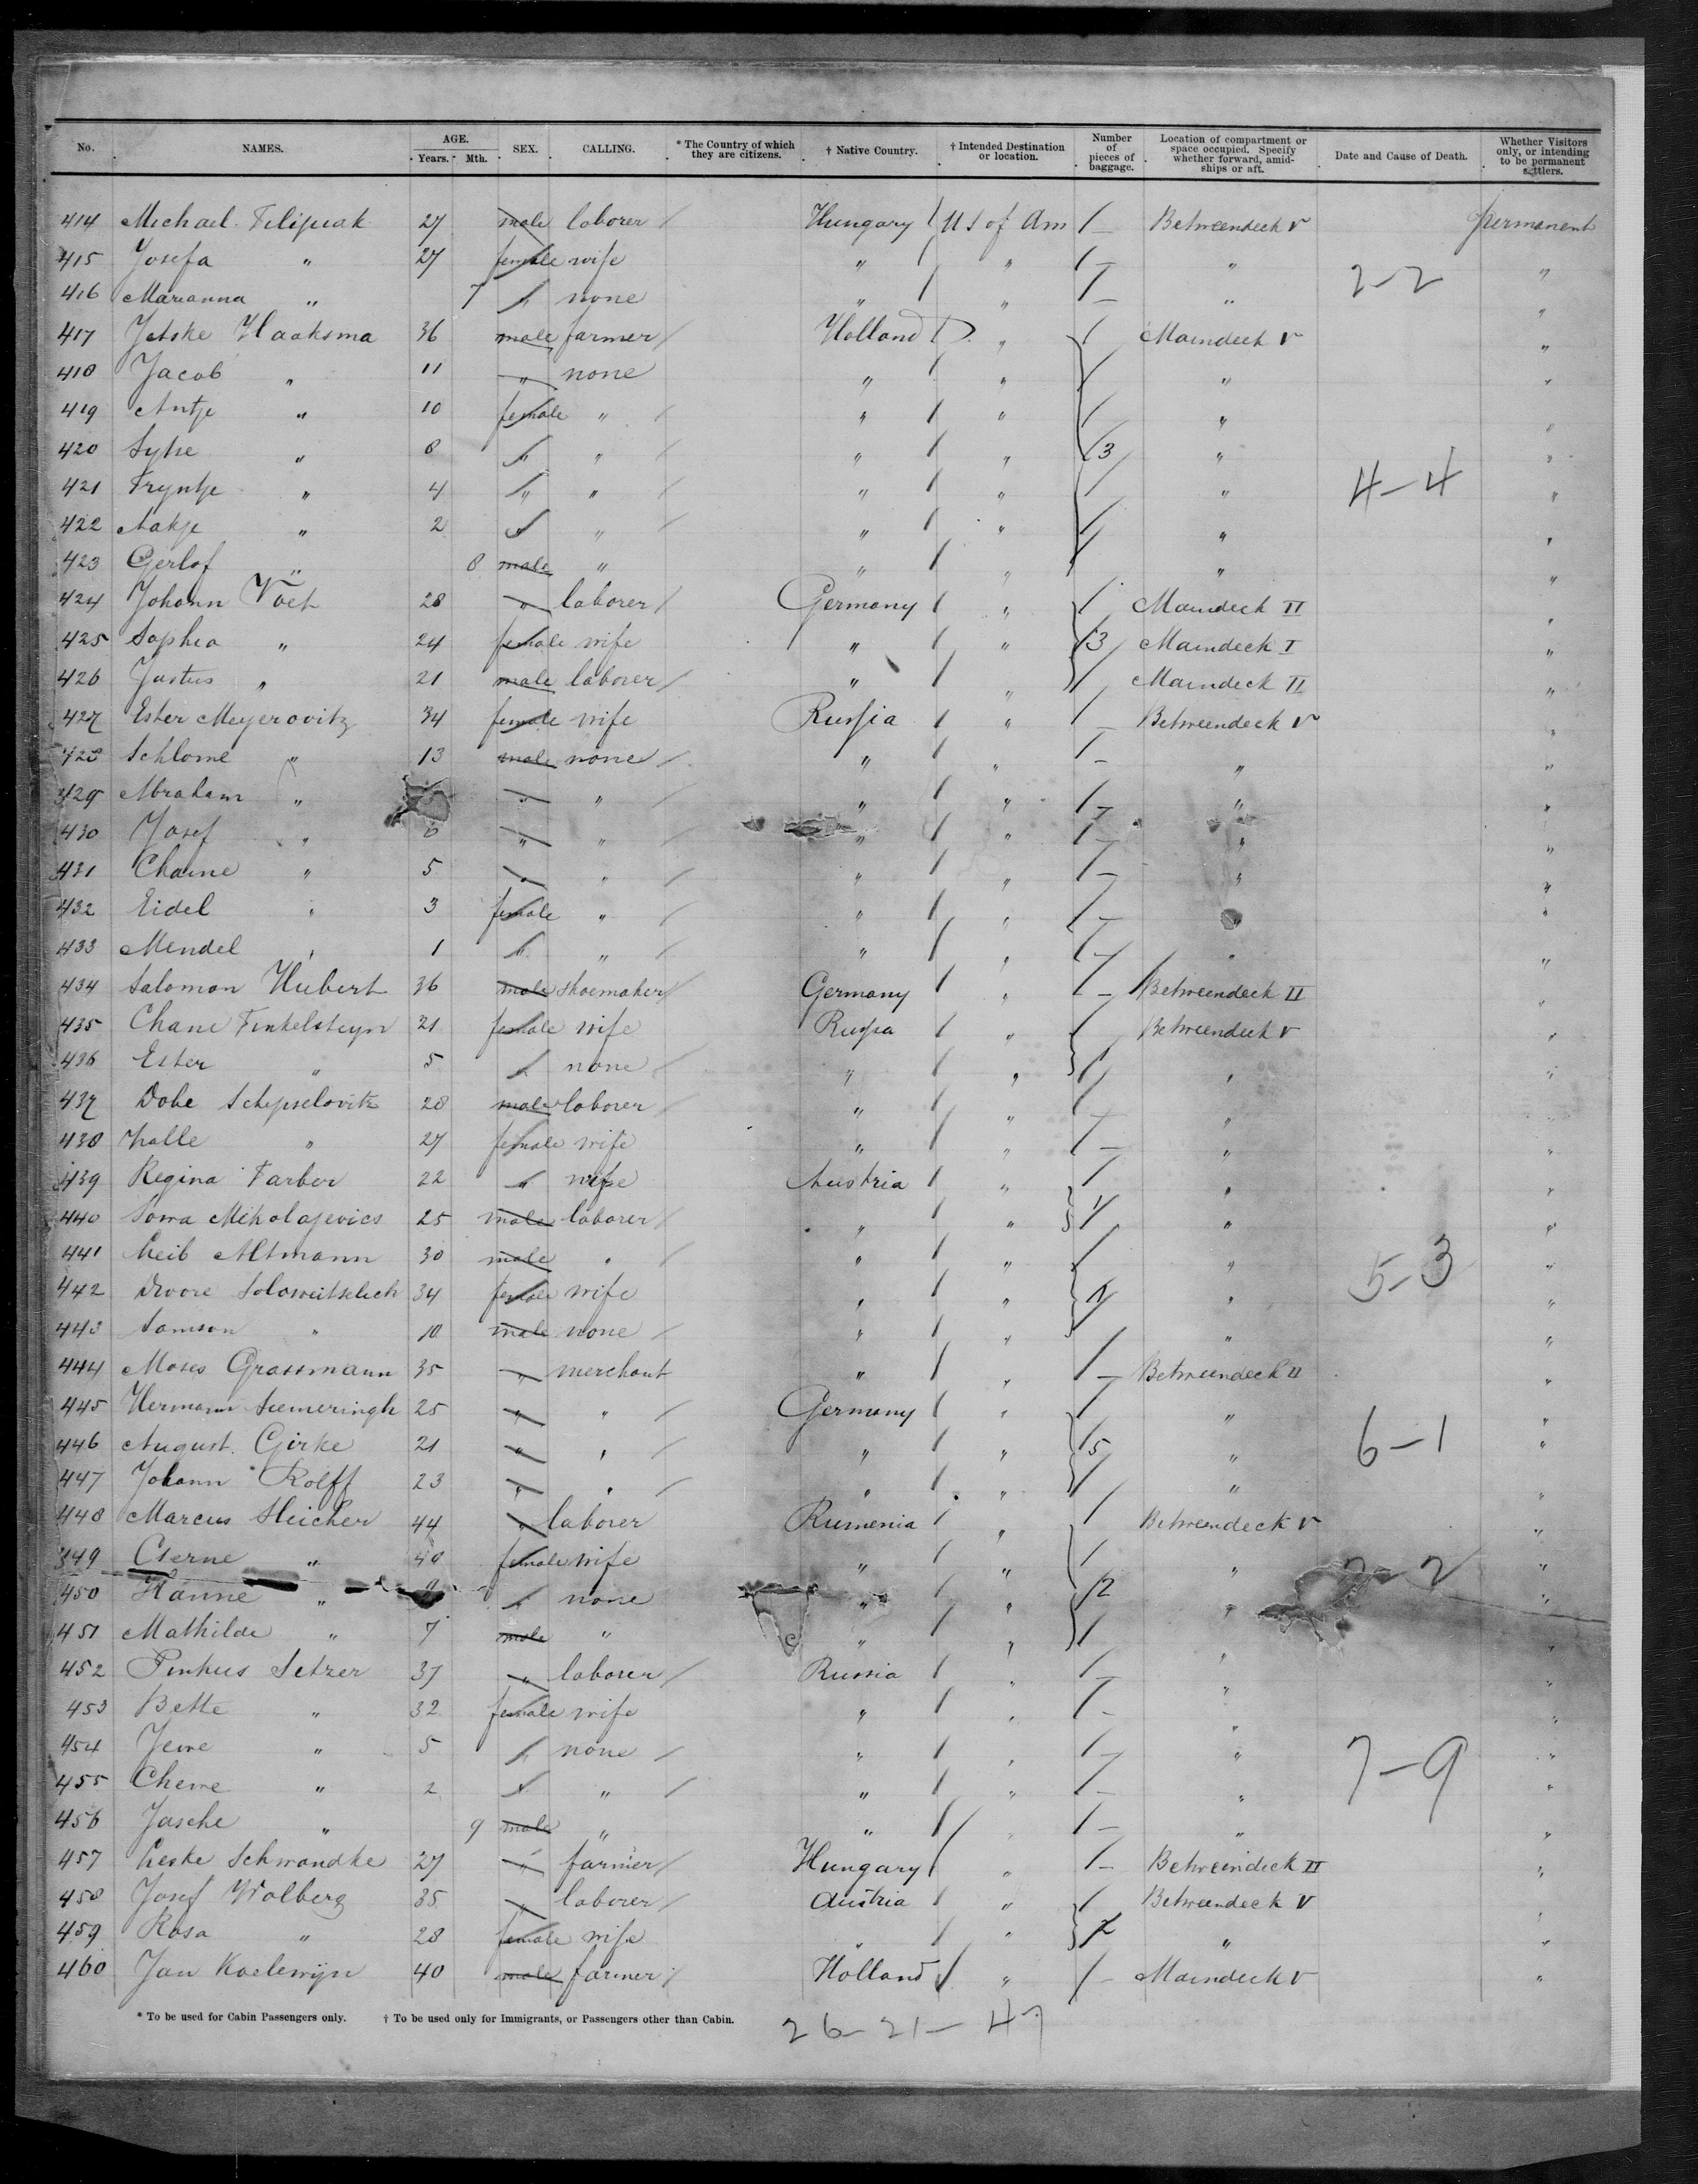 No. NAMES. AGE. Years. Mth. SEX. CALLING. * The Country of which they are citizens. † Native Country. † Intended Destination or location. Number of pieces of baggage. Location of compartment or space occupied. Specify whether forward, amidships or aft. Date and Cause of Death. Whether Visitors only, or intending to be permanent settlers.
414 Michael Filipiak 27 male laborer Hungary U S of Am 1 Betweendeck V permanent
415 Josefa " 27 female wife " " 1 " "
2-2
416 Marianna " 7 " none " " 1 " "
417 Jetske Haaksma 36 male farmer Holland " Maindeck V "
418 Jacob " 11 " none " " " "
419 Antje " 10 female " " " " "
420 Sytse " 8 " " " " 3 " "
421 Tryntje " 4 " " " " " "
4-4
422 Aakje " 2 " " " " " "
423 Gerlof " 8 male " " " " "
424 Johann Voet 28 " laborer Germany " Maindeck II "
425 Sophia " 24 female wife " " 3 Maindeck I "
426 Justus " 21 male laborer " " Maindeck II "
427 Ester Meyerovitz 34 female wife Russia " 1 Betweendeck V "
428 Schlome " 13 male none " " 1 " "
429 Abraham " " " " " 1 " "
430 Josef " 6 " " " " 1 " "
431 Chaine " 5 " " " " 1 " "
432 Eidel " 3 female " " " 1 " "
433 Mendel " 1 " " " " 1 " "
434 Salomon Hubert 36 male shoemaker Germany " 1 Betweendeck II "
435 Chane Finkelsteyn 21 female wife Russia " Betweendeck V "
436 Ester " 5 " none " " 1 " "
437 Dobe Schepselovitz 28 male laborer " " 1 " "
438 Malle " 27 female wife " " 1 " "
439 Regina Farber 22 " wife Austria " " "
440 Sowa Mikolajevics 25 male laborer " " " "
441 Leib Altmann 30 male " " " " "
5-3
442 Dwore Soloweitschech 34 female wife " " " "
443 Samson " 10 male none " " " "
444 Moses Grassmann 35 " merchant " " 1 Betweendeck II "
445 Hermann Siemeringh 25 " " Germany " " "
446 August Girke 21 " " " " 5 " "
6-1
447 Johann Rolff 23 " " " " " "
448 Marcus Heicher 44 " laborer Rumenia " Betweendeck V "
349 Cserne " 40 female wife " " " "
2-2
450 Hanne " " none " " 2 " "
451 Mathilde " 7 male " " " " "
452 Pinkus Setzer 37 " laborer Russia " 1 " "
453 Bette " 32 female wife " " 1 " "
454 Jewe " 5 " none " " 1 " "
7-9
455 Chewe " 2 " " " " 1 " "
456 Jasche " 9 male " " " 1 " "
457 Leske Schwandke 27 " farmer Hungary " 1 Betweendeck II "
458 Josef Wolberg 35 " laborer Austria " Betweendeck V "
459 Rosa " 28 female wife " " 2 " "
460 Jan Koelewijn 40 male farmer Holland " 1 Maindeck V "
* To be used for Cabin Passengers only. † To be used only for Immigrants, or Passengers other than Cabin.
26-21-47